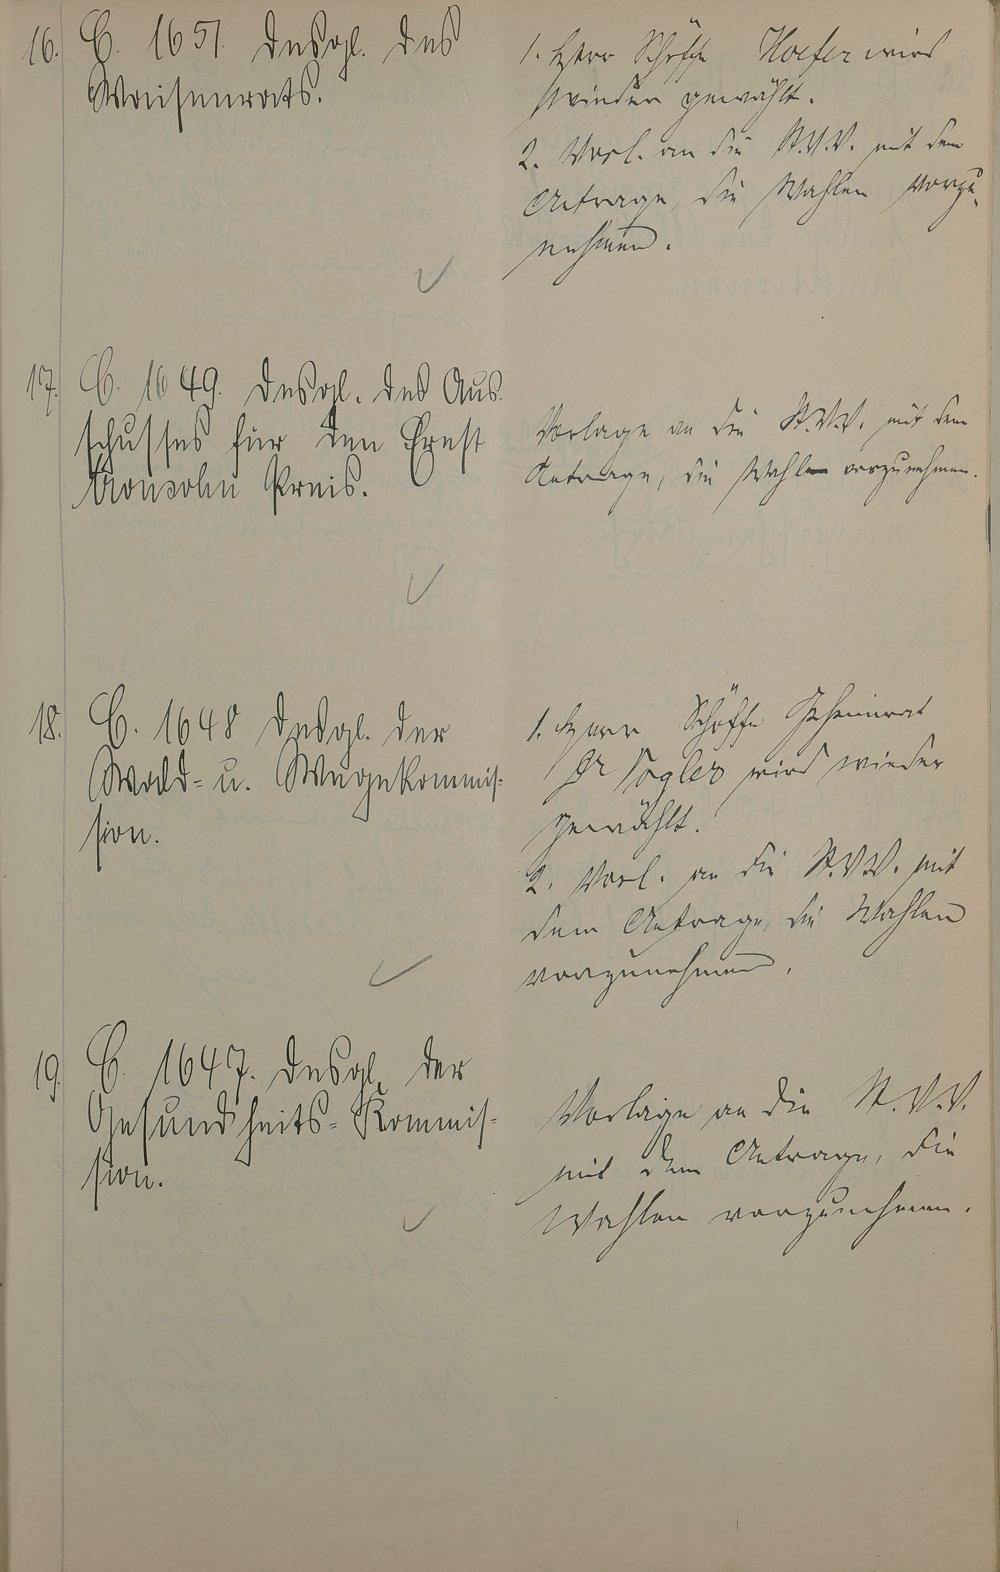 16. C. 1651. Desgl. des
Waisenrats.
1. Herr Schöffe Hoefer wird
wieder gewählt.
2. Vorl. an die St.V.V. mit dem
Antrage, die Wahlen vorzu-
nehmen.
17. C. 1649. Desgl. des Aus-
schusses für den Ernst
Aronsohn Preis.
Vorlage an die St.V.V. mit dem
Antrage, die Wahl vorzunehmen.
18. C. 1648 Desgl. der
Wald- u. Wegekommis-
sion.
1. Herr Schöffe Geheimrat
Dr Vogler wird wieder
gewählt.
2. Vorl. an die St.V.V. mit
dem Antrage, die Wahlen
vorzunehmen.
19. C. 1647. Desgl. der
Gesundheits-Kommis-
sion.
Vorlage an die St.V.V.
mit dem Antrage, die
Wahlen vorzunehmen.